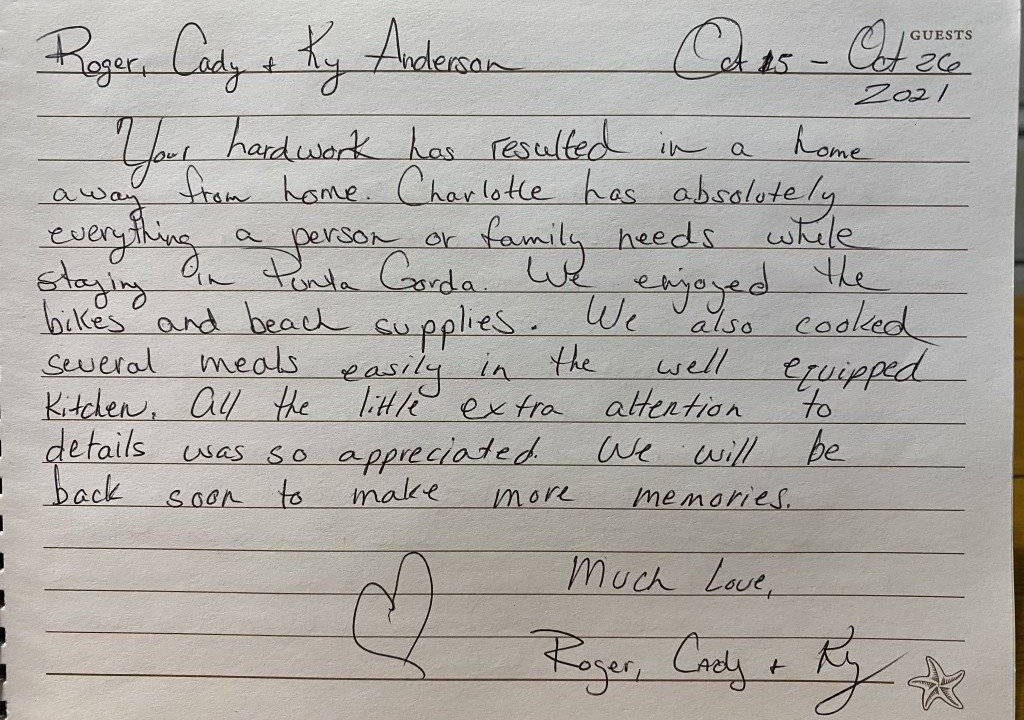 GUESTS
Roger, Cady + Ky Anderson Oct 15 - Oct 26
2021
Your hardwork has resulted in a home
away from home. Charlotte has absolutely
everything a person or family needs while
staying in Punta Gorda. We enjoyed the
bikes and beach supplies. We also cooked
several meals easily in the well equipped
kitchen. All the little extra attention to
details was so appreciated. We will be
back soon to make more memories.
Much Love,
Roger, Cady + Ky